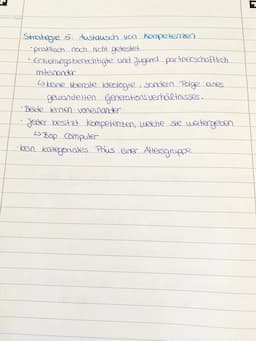 Strategie 5: Austausch von Kompetenzen
· praktisch noch nicht getestet
· Erziehungsberechtigte und Jugend partnerschaftlich
miteinander
↳ keine liberale Ideologie, sondern Folge eines
gewandelten Generationsverhältnisses.
· Beide lernen voneinander
· Jeder besitzt Kompetenzen, welche sie weitergeben
↳ Bsp Computer
· kein kategoriales Plus einer Altersgruppe